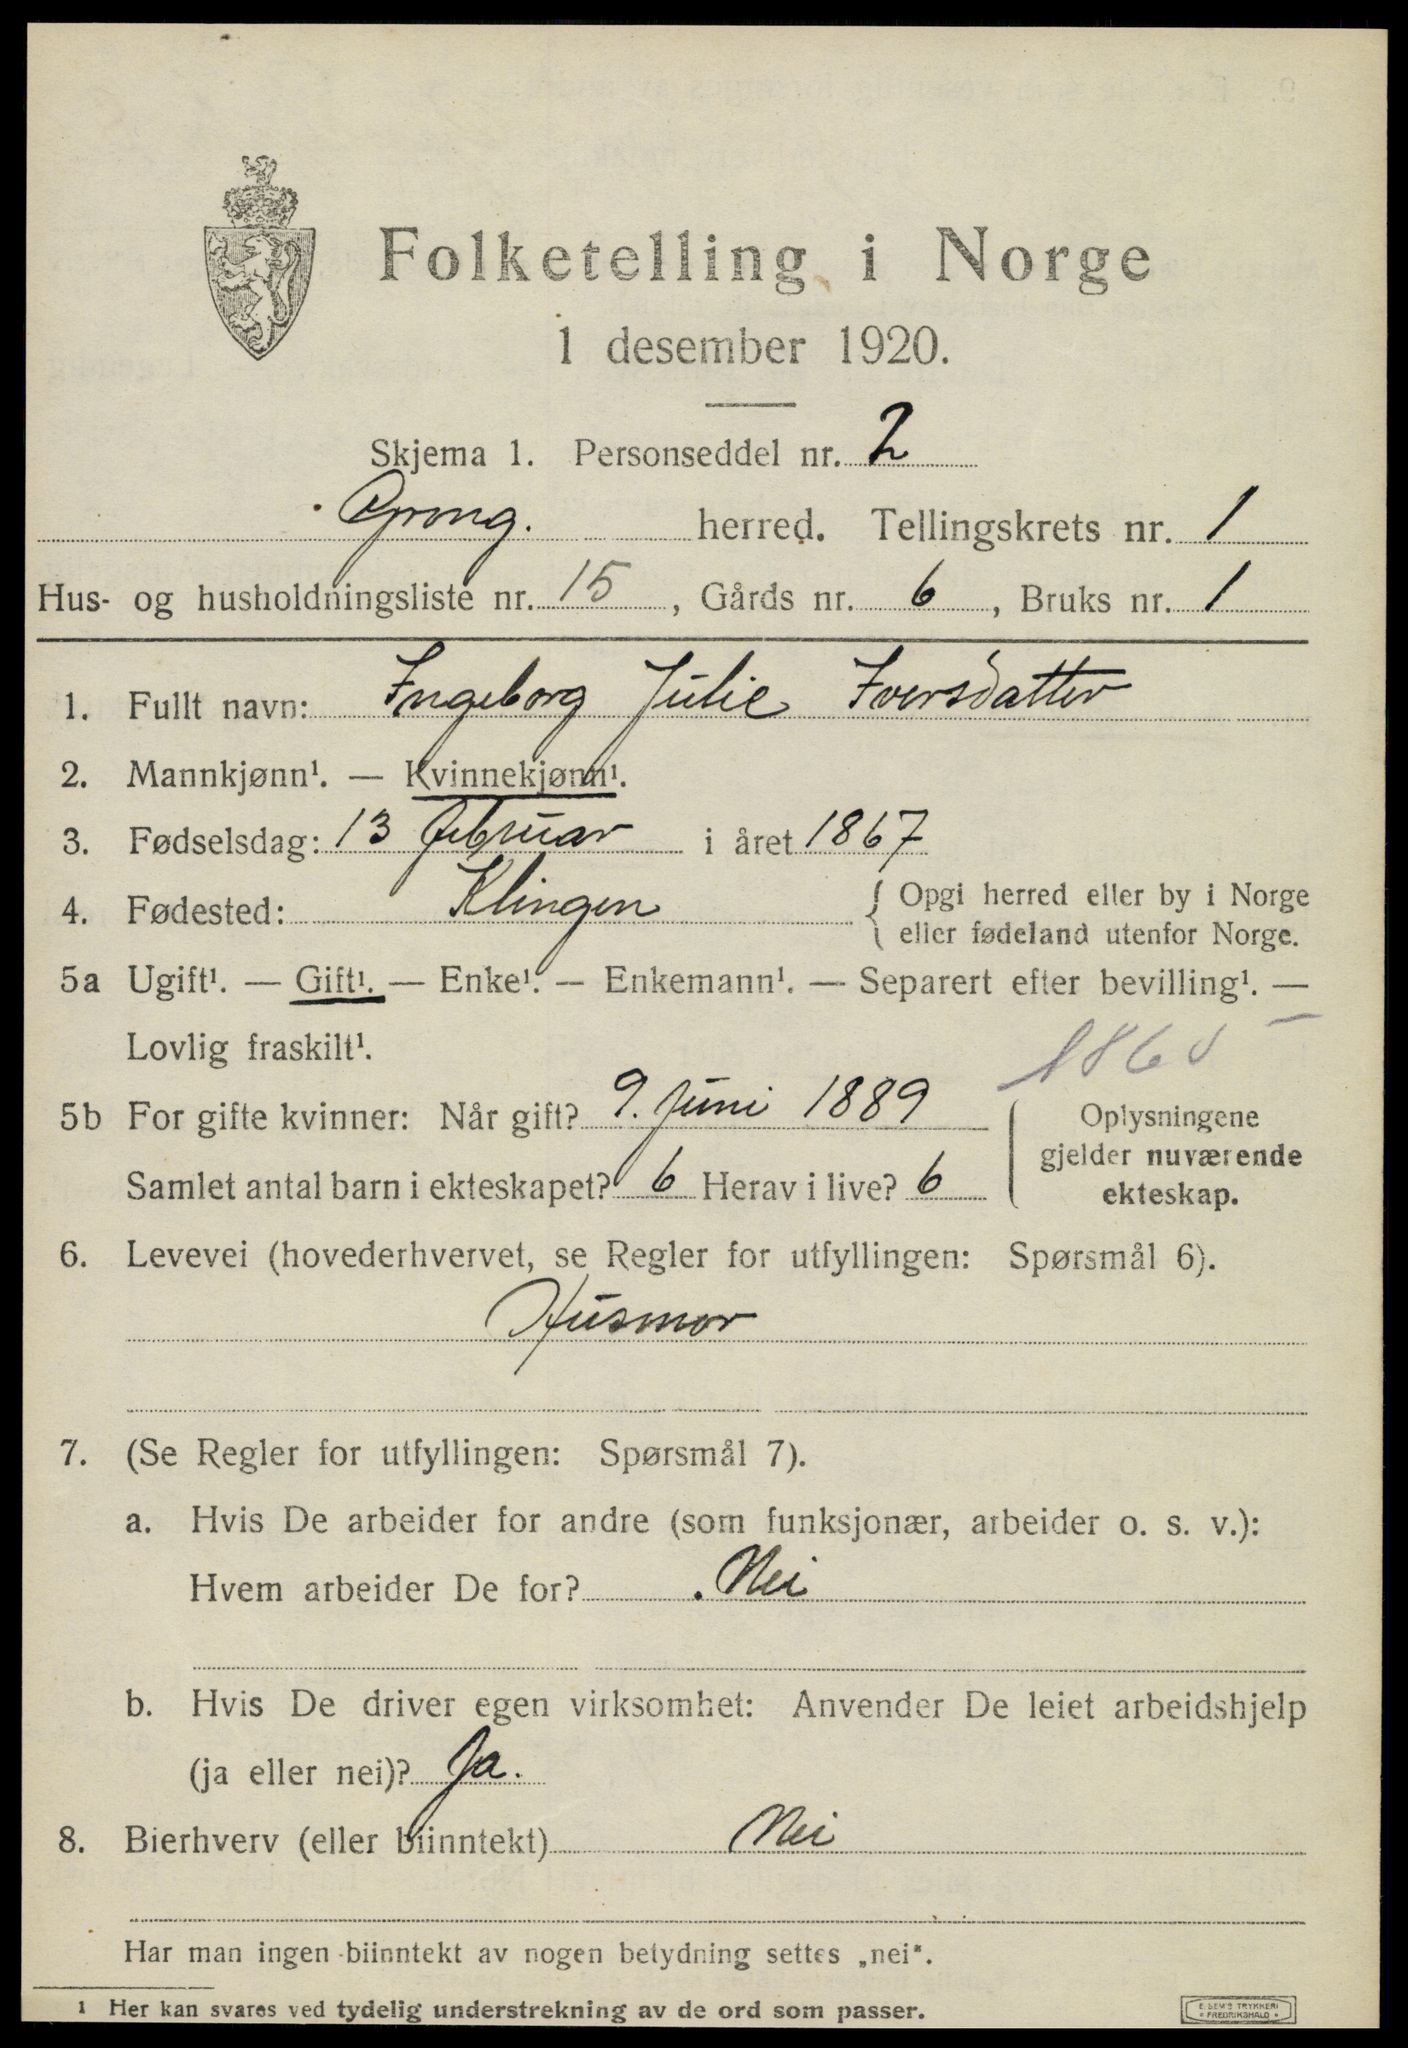 Folketelling i Norge
1 desember 1920.
Skjema 1. Personseddel nr. 2
Grong. herred. Tellingskrets nr. 1
Hus- og husholdningsliste nr. 15, Gårds nr. 6, Bruks nr. 1
1. Fullt navn: Ingeborg Julie Iversdatter
2. Mannkjønn¹. — Kvinnekjønn¹.
3. Fødselsdag: 13 februar i året 1867
4. Fødested: Klingen { Opgi herred eller by i Norge
eller fødeland utenfor Norge.
5a Ugift¹. — Gift¹. — Enke¹. — Enkemann¹. — Separert efter bevilling¹. —
Lovlig fraskilt¹.
5b For gifte kvinner: Når gift? 9. Juni 1889
Samlet antal barn i ekteskapet? 6 Herav i live? 6
Oplysningene
gjelder nuværende
ekteskap.
6. Levevei (hovederhvervet, se Regler for utfyllingen: Spørsmål 6).
Husmor
7. (Se Regler for utfyllingen: Spørsmål 7).
a. Hvis De arbeider for andre (som funksjonær, arbeider o. s. v.):
Hvem arbeider De for? Nei
b. Hvis De driver egen virksomhet: Anvender De leiet arbeidshjelp
(ja eller nei)? Ja.
8. Bierhverv (eller biinntekt) Nei
Har man ingen biinntekt av nogen betydning settes „nei".
1 Her kan svares ved tydelig understrekning av de ord som passer.
E. SEM'S TRYKKERI
• FREDRIKSHALD •